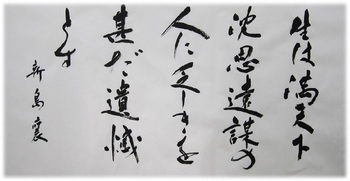 生は満天下
沈思遠謀の
人に乏しきを
甚だ遺憾
とす
新島襄